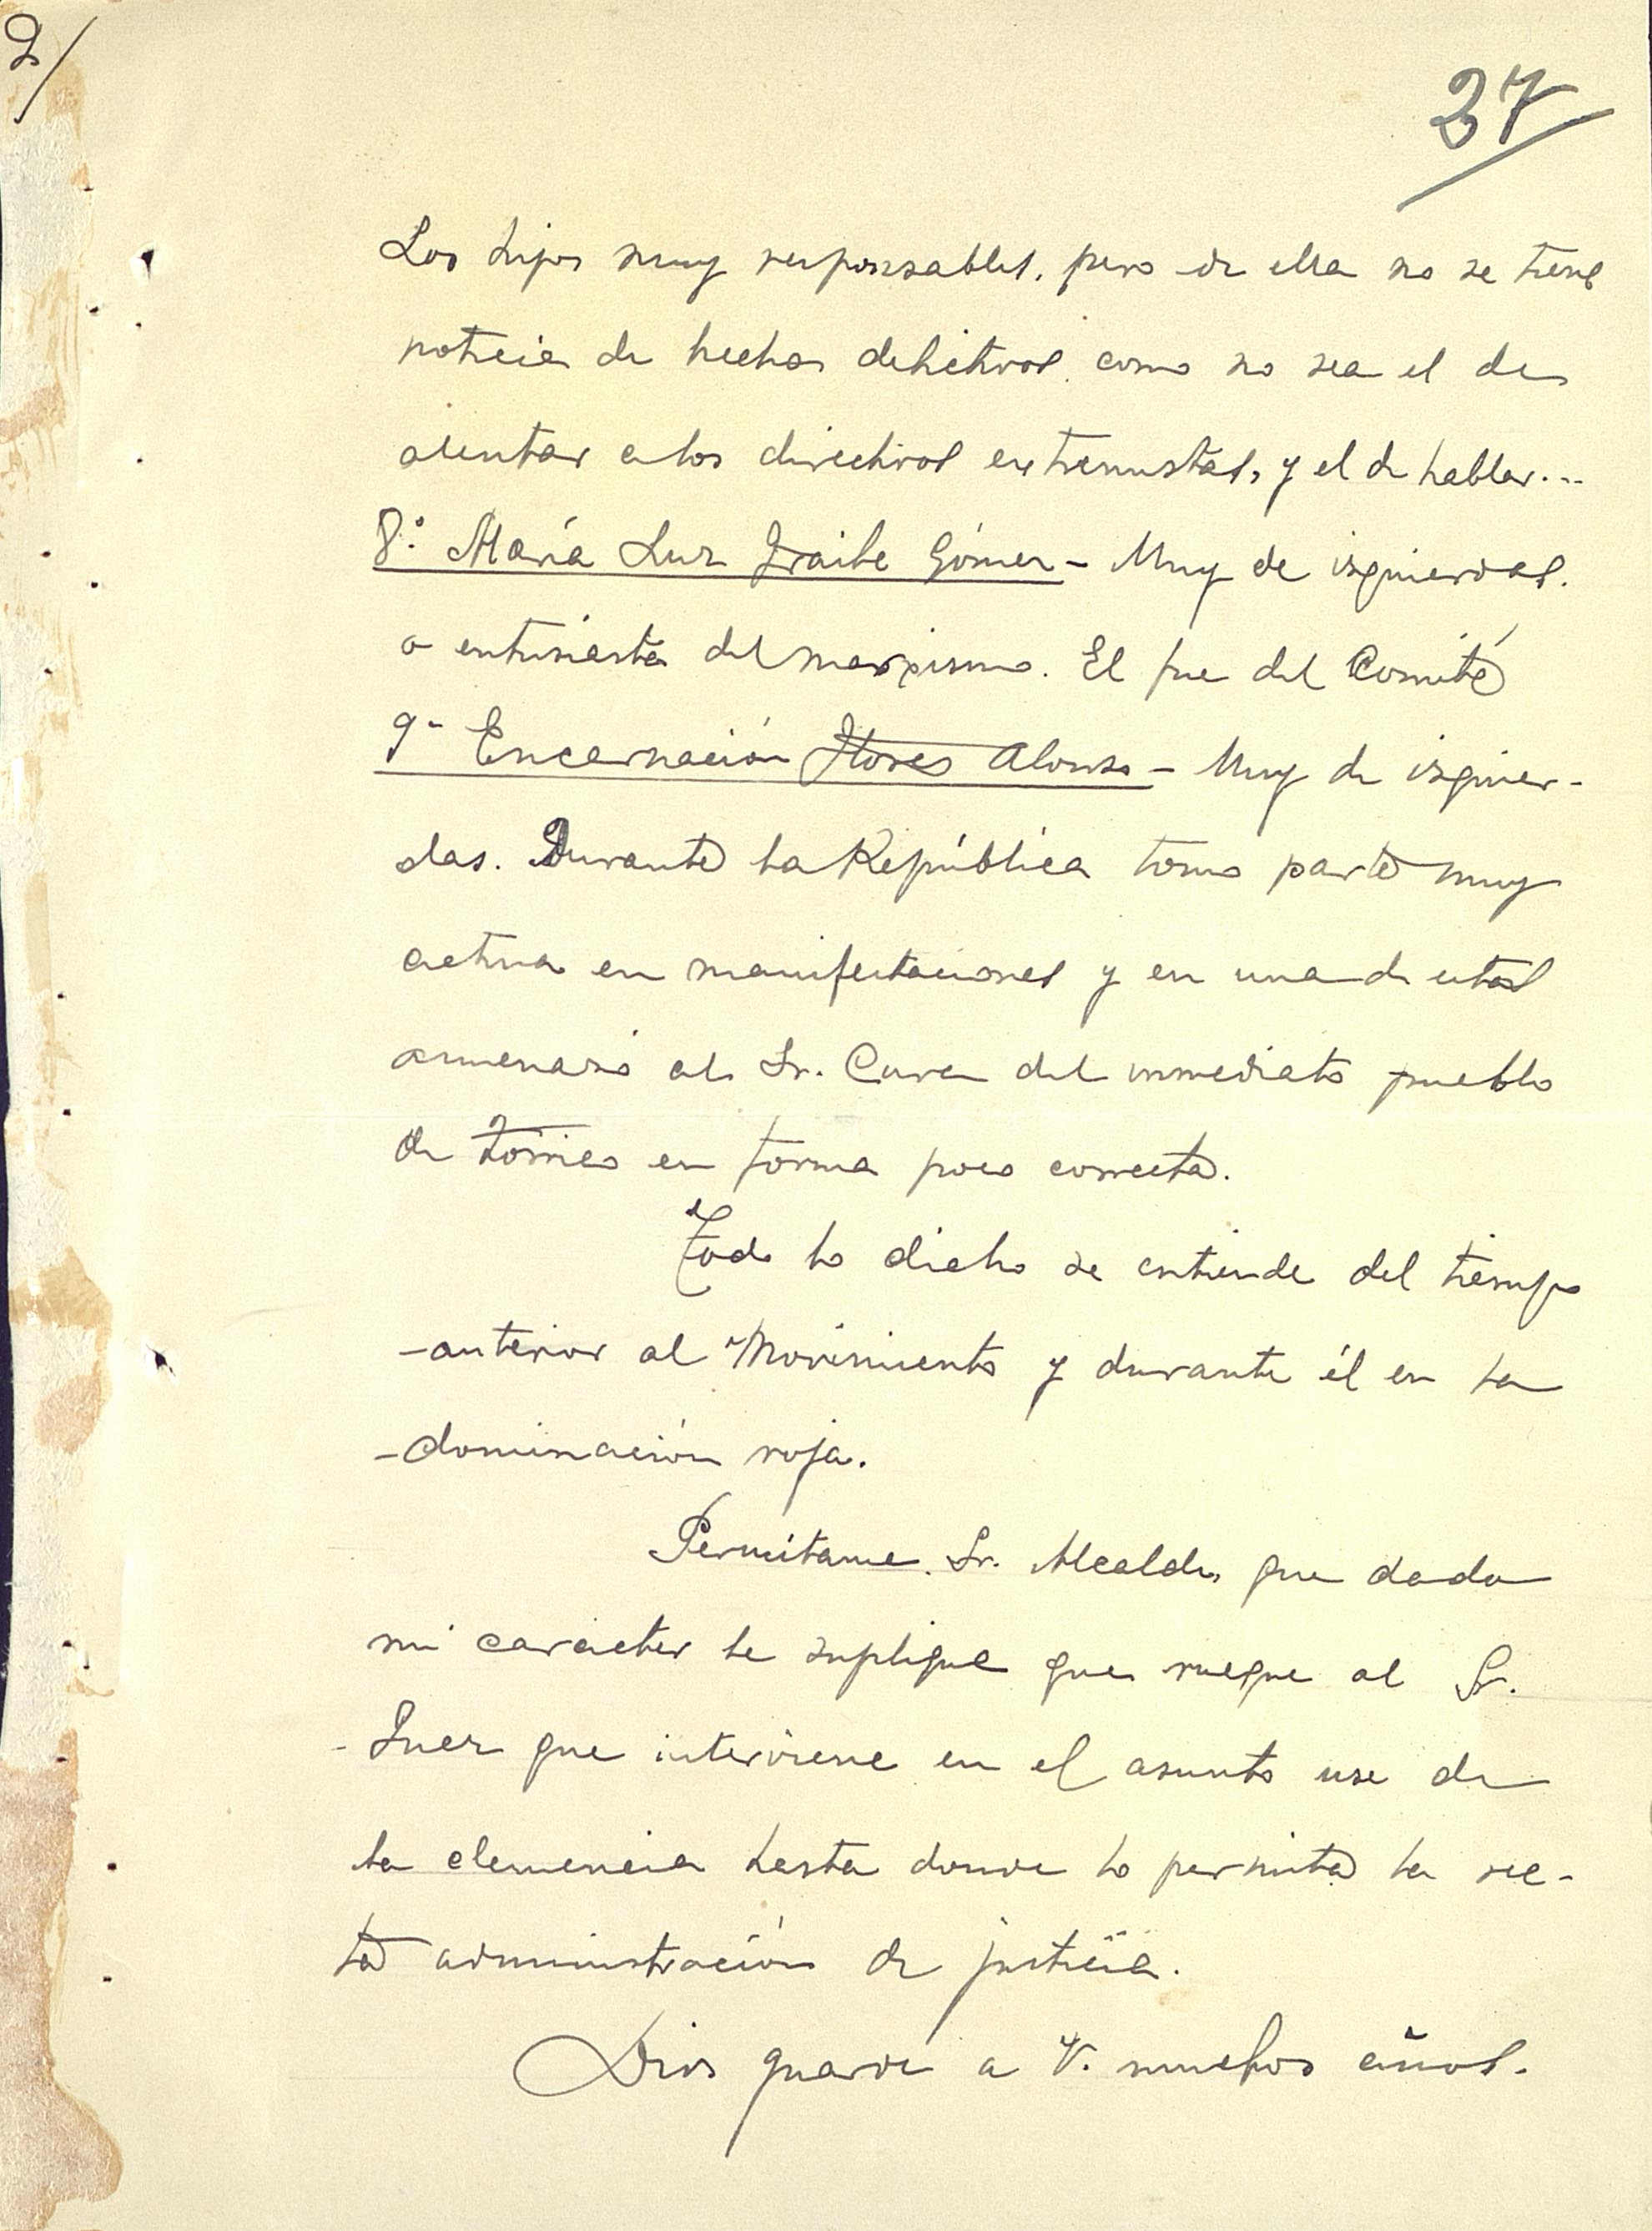 2/
27
Los hijos muy responsables, pero de ella no se tiene
noticia de hechos delictivos como no sea el de
alentar a los directivos extremistas, y el de hablar...
8º María Luz Fraile Gómez - Muy de izquierdas.
o entusiasta del marxismo. El fue del Comité
9ª Encarnación Flores Alonso - Muy de izquier-
das. Durante la República tomo parte muy
activa en manifestaciones y en una de estas
amenazó al Sr. Cura del inmediato pueblo
de en forma poco correcta.
Todo lo dicho se entiende del tiempo
anterior al Movimiento y durante él en la
dominación roja.
Permitame Sr. Alcalde, que dado
mi carácter le suplique que ruegue al Sr.
Juez que interviene en el asunto use de
la clemencia hasta donde lo permita la rec-
ta administración de justicia.
Dios guarde a V. muchos años.